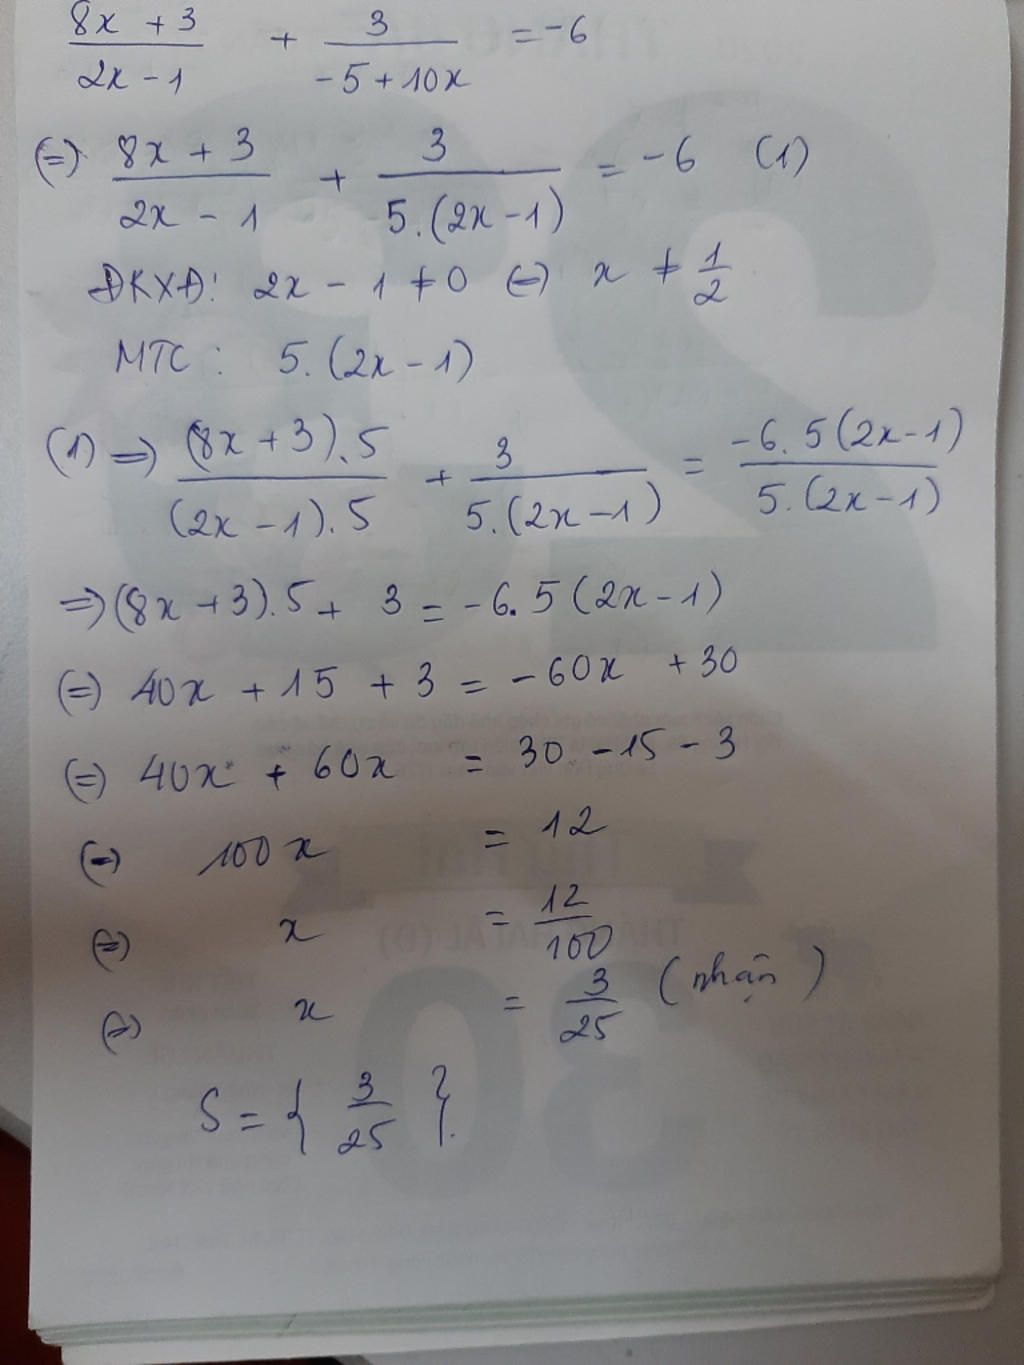 8x + 3 / 2x - 1 + 3 / -5 + 10x = -6
(=) 8x + 3 / 2x - 1 + 3 / 5.(2x - 1) = -6 (1)
ĐKXĐ: 2x - 1 ≠ 0 (=) x ≠ 1/2
MTC : 5.(2x - 1)
(1) => (8x + 3).5 / (2x - 1).5 + 3 / 5.(2x - 1) = -6.5(2x - 1) / 5.(2x - 1)
=> (8x + 3).5 + 3 = -6.5(2x - 1)
(=) 40x + 15 + 3 = -60x + 30
(=) 40x + 60x = 30 - 15 - 3
(=) 100x = 12
(=) x = 12/100
(=) x = 3/25 (nhận)
S = { 3/25 }.